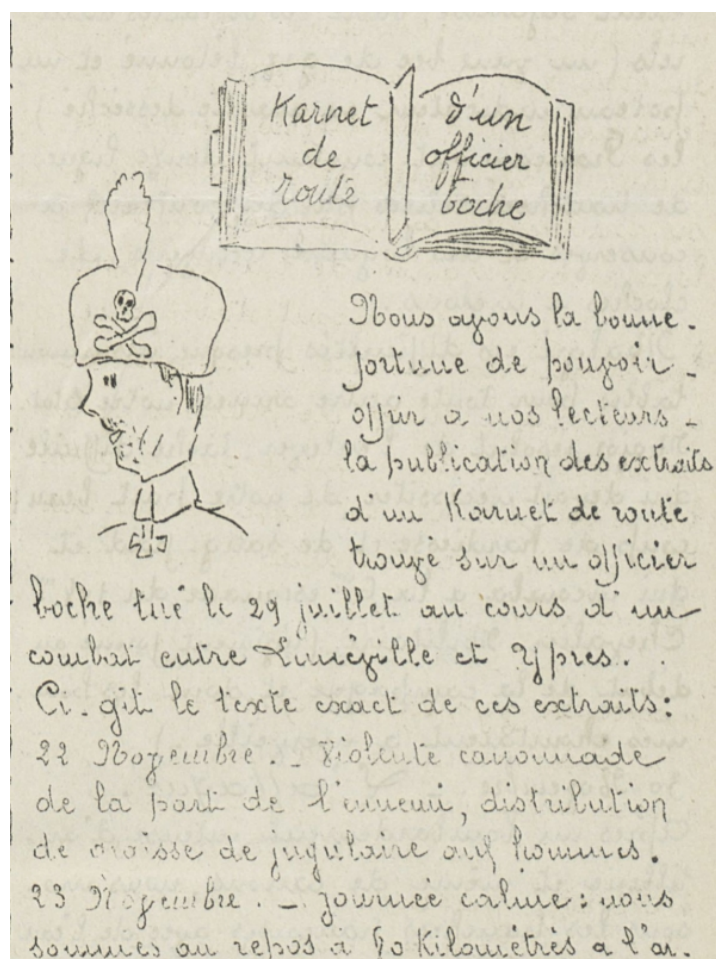 Karnet
de
route
d'un
officier
boche
Nous avons la bonne.
fortune de pouvoir -
offrir a nos lecteurs -
la publication des extraits
d'un Karnet de route
trouvé sur un officier
boche tué le 29 juillet au cours d'un
combat entre Lunéville et Ypres.
Ci. gît le texte exact de ces extraits:
22 Novembre. _ Violente canonnade
de la part de l'ennemi, distribution
de graisse de jugulaire aux hommes.
23 Novembre. _ Journée calme: nous
sommes au repos à 70 Kilomètres a l'ar.